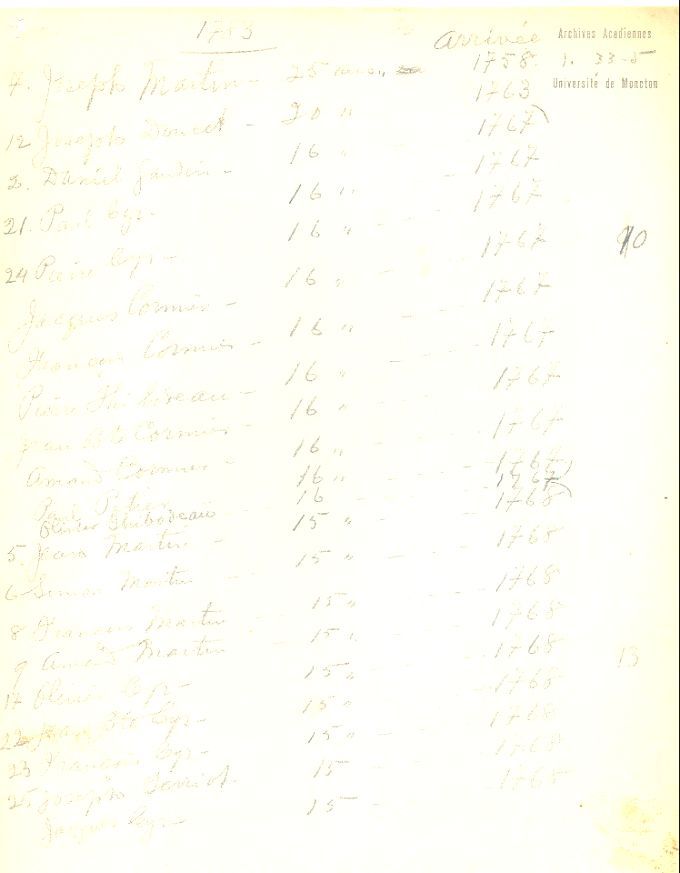 1783
Arrivée
Archives Acadiennes
1. 33-5
Université de Moncton
4. Joseph Martin - 25 ans 1758
12 Joseph Doucet - 20 " 1763
2. Daniel Gaudin - 16 " 1767
21. Paul Cyr - 16 " 1767
24 Pierre Cyr - 16 " 1767
Jacques Cormier - 16 " 1767
François Cormier - 16 " 1767
Pierre Thibodeau - 16 " 1767
Jean Bte Cormier - 16 " 1767
Amand Cormier - 16 " 1767
Paul 16 " 1767
Olivier Thibodeau - 16 1767
5. Jean Martin - 15 " 1768
6 Simon Martin - 15 " 1768
8 François Martin - 15 " 1768
9 Amand Martin - 15 " 1768
17 Olivier Cyr - 15 " 1768
22 Jean Bte Cyr - 15 " 1768
23 François Cyr - 15 " 1768
25 Joseph 15 1768
Jacques Cyr - 15 1768
10
13